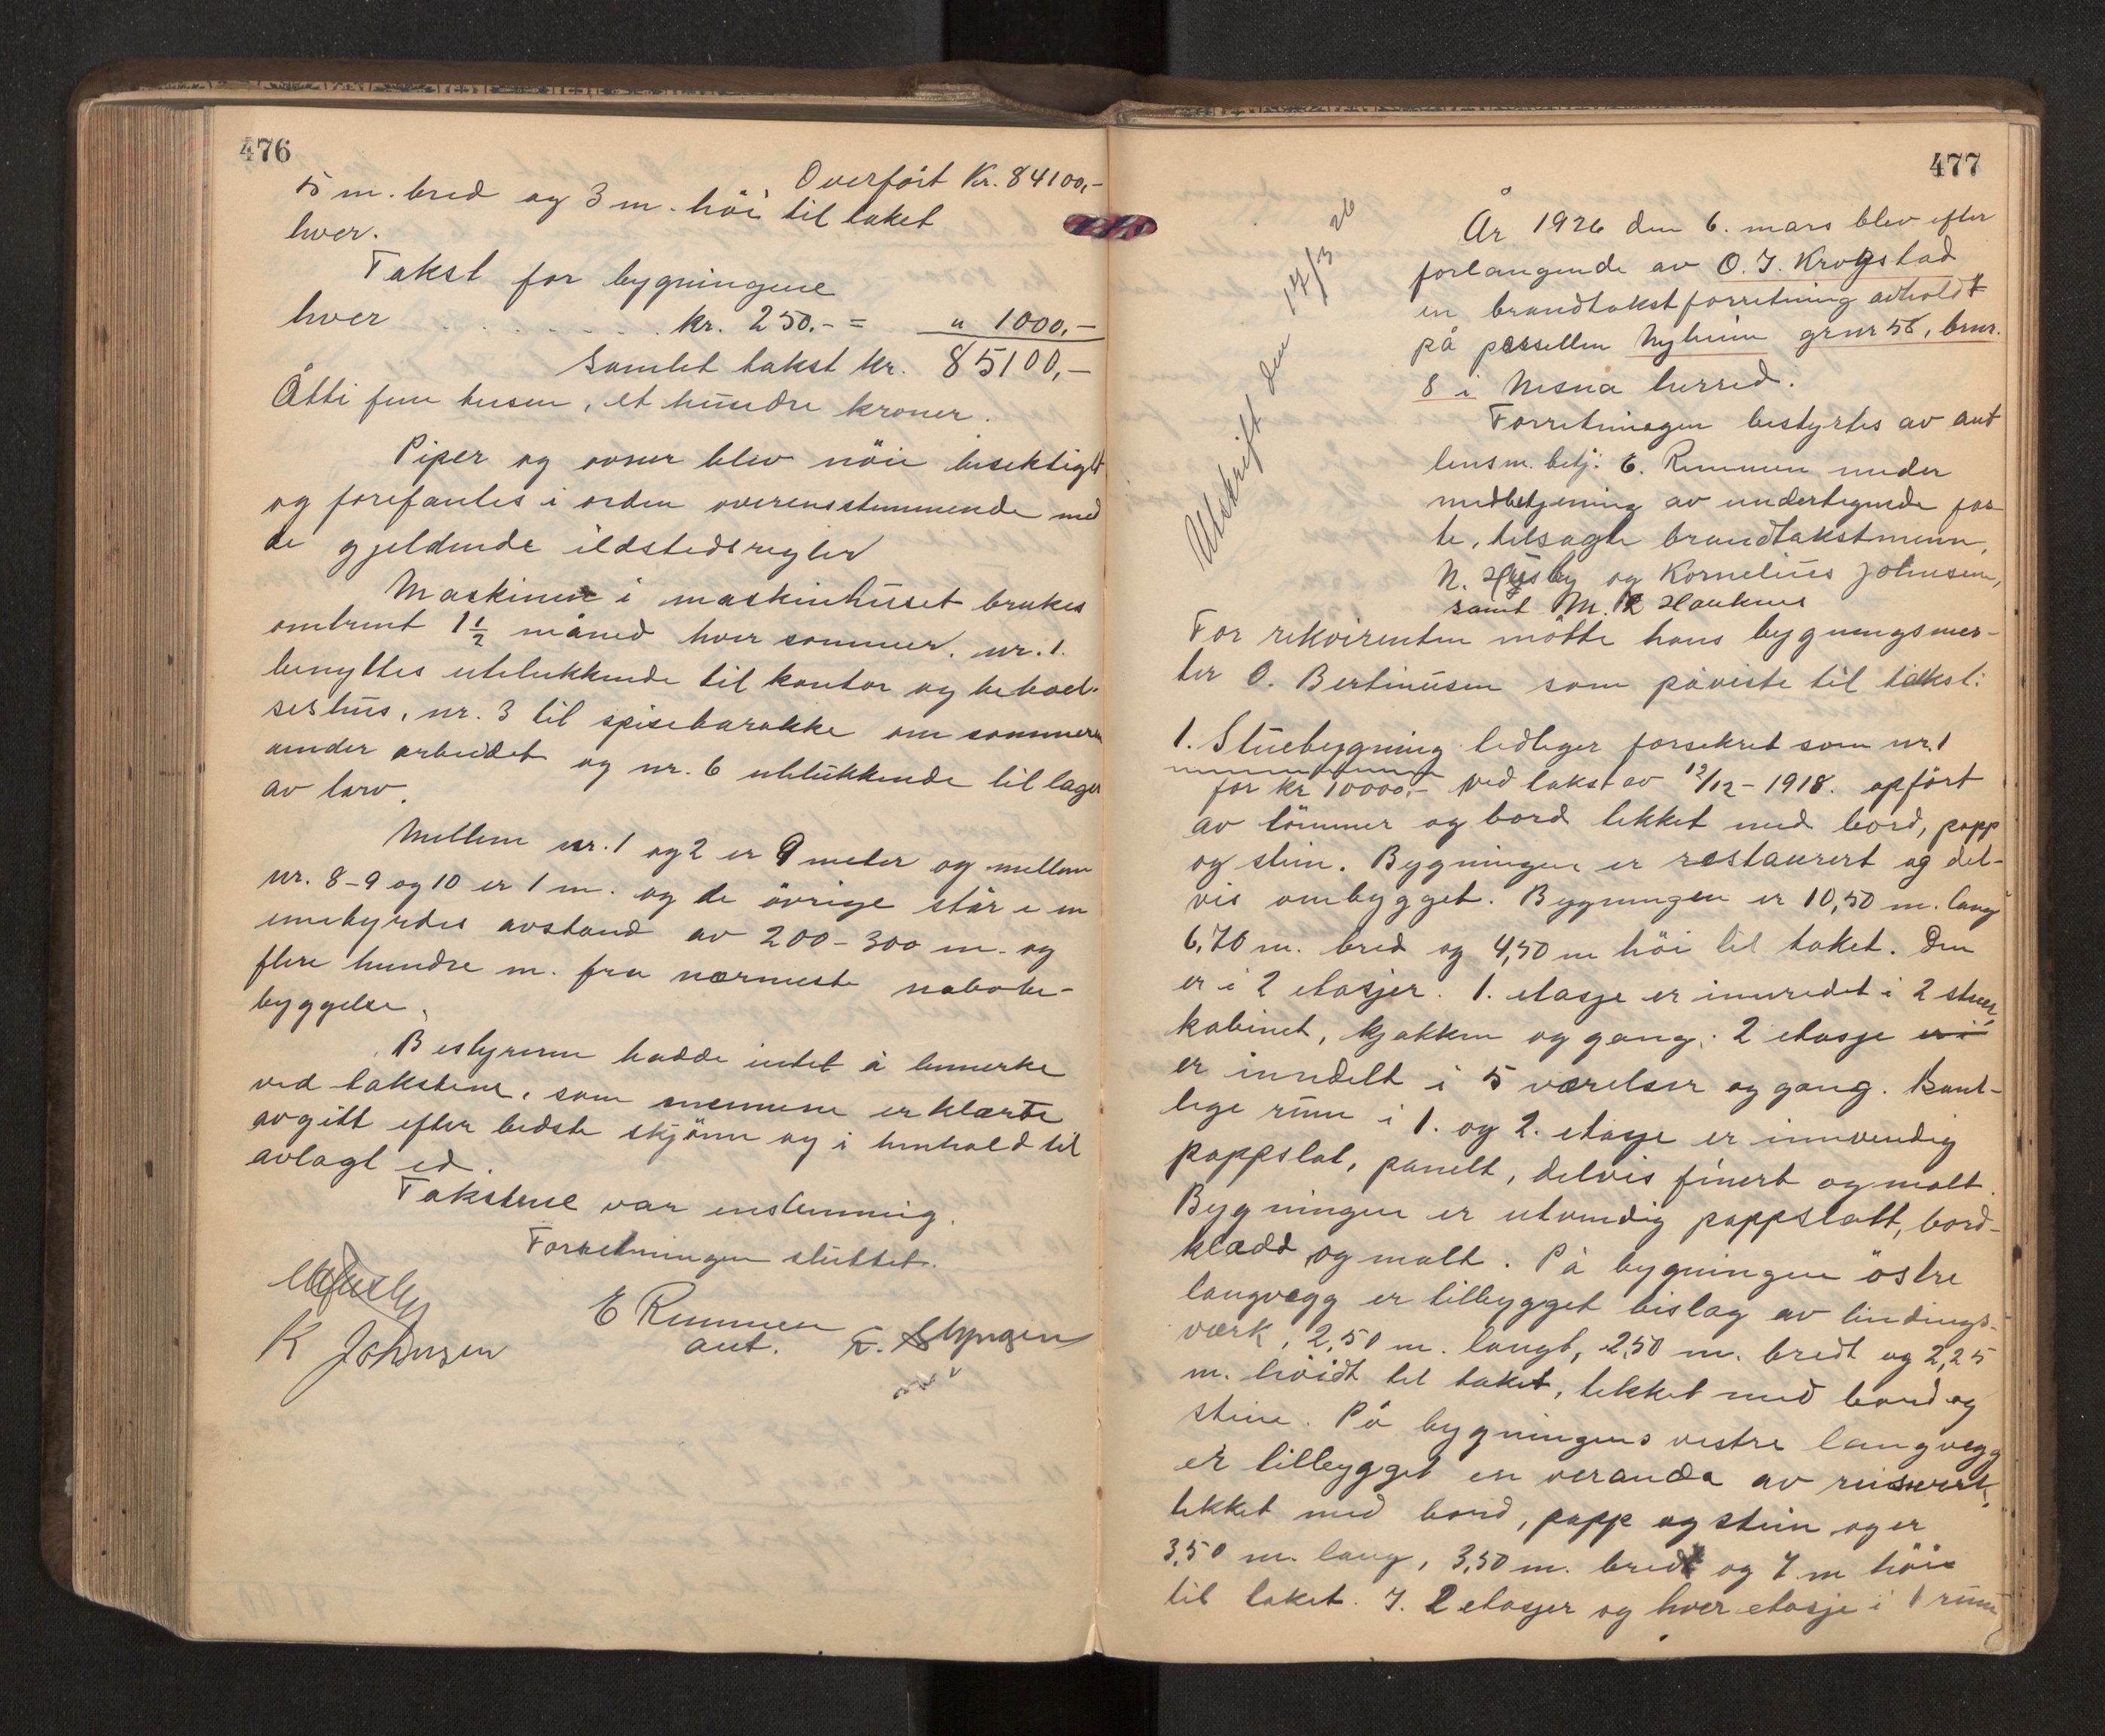 476
Overført Kr. 84100,-
5 m. bred og 3 m. höi til taket
hver.
Takst for bygningene
hver . . . . . . . kr. 250.- = " 1000,-
Samlet takst kr. 85100,-
Åtti fem tusen, et hundre kroner.
Piper og ovner blev nöie besiktiget
og forefantes i orden overensstemmende med
de gjeldende ildstedsregler
Maskinen i maskinhuset brukes
omtrent 1 1/2 måned hver sommer. nr. 1.
benyttes utelukkende til kontor og beboel-
seshus, nr. 3 til spisebarakke om sommeren
under arbeidet og nr. 6 utelukkende til lager
av torv.
Mellem nr. 1 og 2 er 9 meter og mellem
nr. 8-9 og 10 er 1 m. og de övrige står i en
innbyrdes avstand av 200-300 m. og
flere hundre m. fra nærmeste nabobe-
byggelse.
Bestyreren hadde intet å bemerke
ved takstene, som mennene erklærte
avgitt efter bedste skjönn og i henhold til
avlagt ed.
Takstene var enstemmig.
Forretningen sluttet.
E Remmen
K Johnsen aut.
477
Utskrift den 17/3 26
År 1926 den 6. mars blev efter
forlangende av O. J. Krogstad
en brandtakstforretning avholdt
på parsellen Nyheim grnr 56, brnr.
8 i Nesna herred.
Forretningen bestyrtes av aut
lensm. betj. E. Remmen under
medbetjening av undertegnede fas-
te, tilsagte brandtakstmenn,
N. Husby og Kornelius Johnsen,
samt M. Hauknes
For rekvirenten mötte hans bygningsmes-
ter O. Bertinusen som påviste til takst:
1. Stuebygning tidliger forsekret som nr. 1
for kr 10000.- ved takst av 12/12 - 1918. opfört
av tömmer og bord tekket med bord, papp
og stein. Bygningen er restaurert og del-
vis ombygget. Bygningen er 10,50 m. lang
6,70 m. bred og 4,50 m höi til taket. Den
er i 2 etasjer. 1. etasje er innredet i 2 stuer,
kabinet, kjøkken og gang; 2 etasje er i
er inndelt i 5 værelser og gang. Samt-
lige rum i 1. og 2. etasje er innvendig
pappslat, panelt, delvis finert og malt.
Bygningen er utvendig pappslatt, bord-
klædd og malt. På bygningen östre
langvegg er tilbygget bislag av bindings-
værk, 2,50 m. langt, 2,50 m. bredt og 2,25
m. höidt til taket, tekket med bord og
stein. På bygningens vestre langvegg
er tilbygget en veranda av reisverk,
tekket med bord, papp og stein og er
3,50 m. lang, 3,50 m. bred og 7 m höi
til taket. I. 2 etasjer og hver etasje i 1 rum